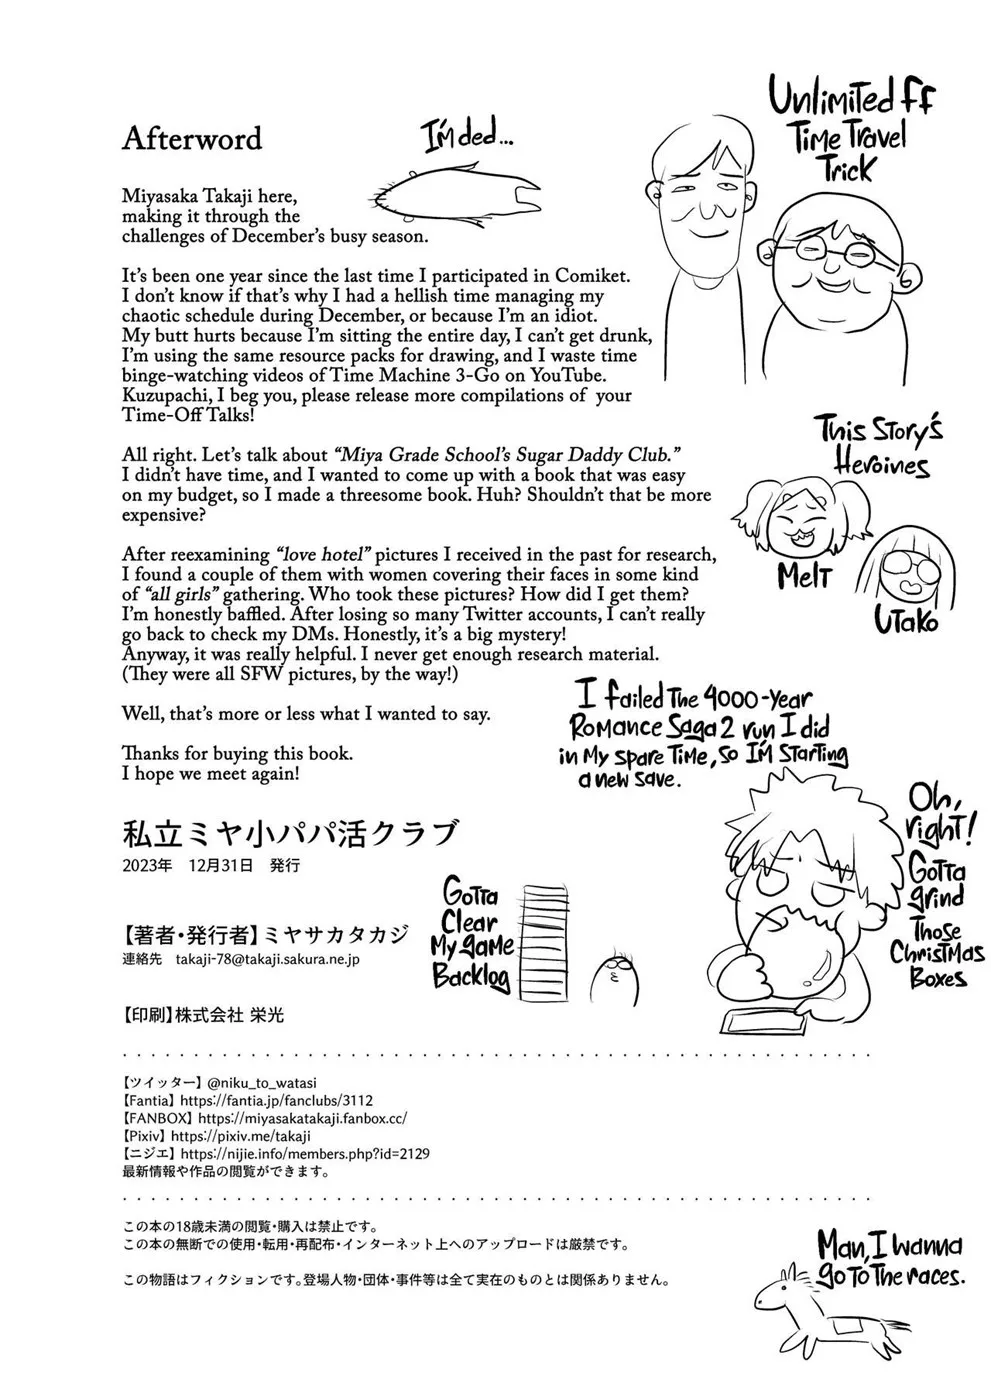 Afterword
I'm ded...
Unlimited ff
Time Travel
Trick
Miyasaka Takaji here,
making it through the
challenges of December's busy season.
It's been one year since the last time I participated in Comiket.
I don't know if that's why I had a hellish time managing my
chaotic schedule during December, or because I'm an idiot.
My butt hurts because I'm sitting the entire day, I can't get drunk,
I'm using the same resource packs for drawing, and I waste time
binge-watching videos of Time Machine 3-Go on YouTube.
Kuzupachi, I beg you, please release more compilations of your
Time-Off Talks!
This Story's
Heroines
Melt
Utako
All right. Let's talk about “Miya Grade School's Sugar Daddy Club.”
I didn't have time, and I wanted to come up with a book that was easy
on my budget, so I made a threesome book. Huh? Shouldn't that be more
expensive?
After reexamining “love hotel” pictures I received in the past for research,
I found a couple of them with women covering their faces in some kind
of “all girls” gathering. Who took these pictures? How did I get them?
I'm honestly baffled. After losing so many Twitter accounts, I can't really
go back to check my DMs. Honestly, it's a big mystery!
Anyway, it was really helpful. I never get enough research material.
(They were all SFW pictures, by the way!)
Well, that's more or less what I wanted to say.
Thanks for buying this book.
I hope we meet again!
I failed the 4000-year
Romance Saga 2 run I did
in my spare time, so I'm starting
a new save.
Oh,
right!
Gotta
grind
Those
Christmas
Boxes
Gotta
Clear
My game
Backlog
私立ミヤ小パパ活クラブ
2023年　12月31日　発行
【著者・発行者】ミヤサカタカジ
連絡先　takaji-78@takaji.sakura.ne.jp
【印刷】株式会社 栄光
【ツイッター】@niku_to_watasi
【Fantia】https://fantia.jp/fanclubs/3112
【FANBOX】https://miyasakatakaji.fanbox.cc/
【Pixiv】https://pixiv.me/takaji
【ニジエ】https://nijie.info/members.php?id=2129
最新情報や作品の閲覧ができます。
この本の18歳未満の閲覧・購入は禁止です。
この本の無断での使用・転用・再配布・インターネット上へのアップロードは厳禁です。
この物語はフィクションです。登場人物・団体・事件等は全て実在のものとは関係ありません。
Man, I wanna
go to the races.